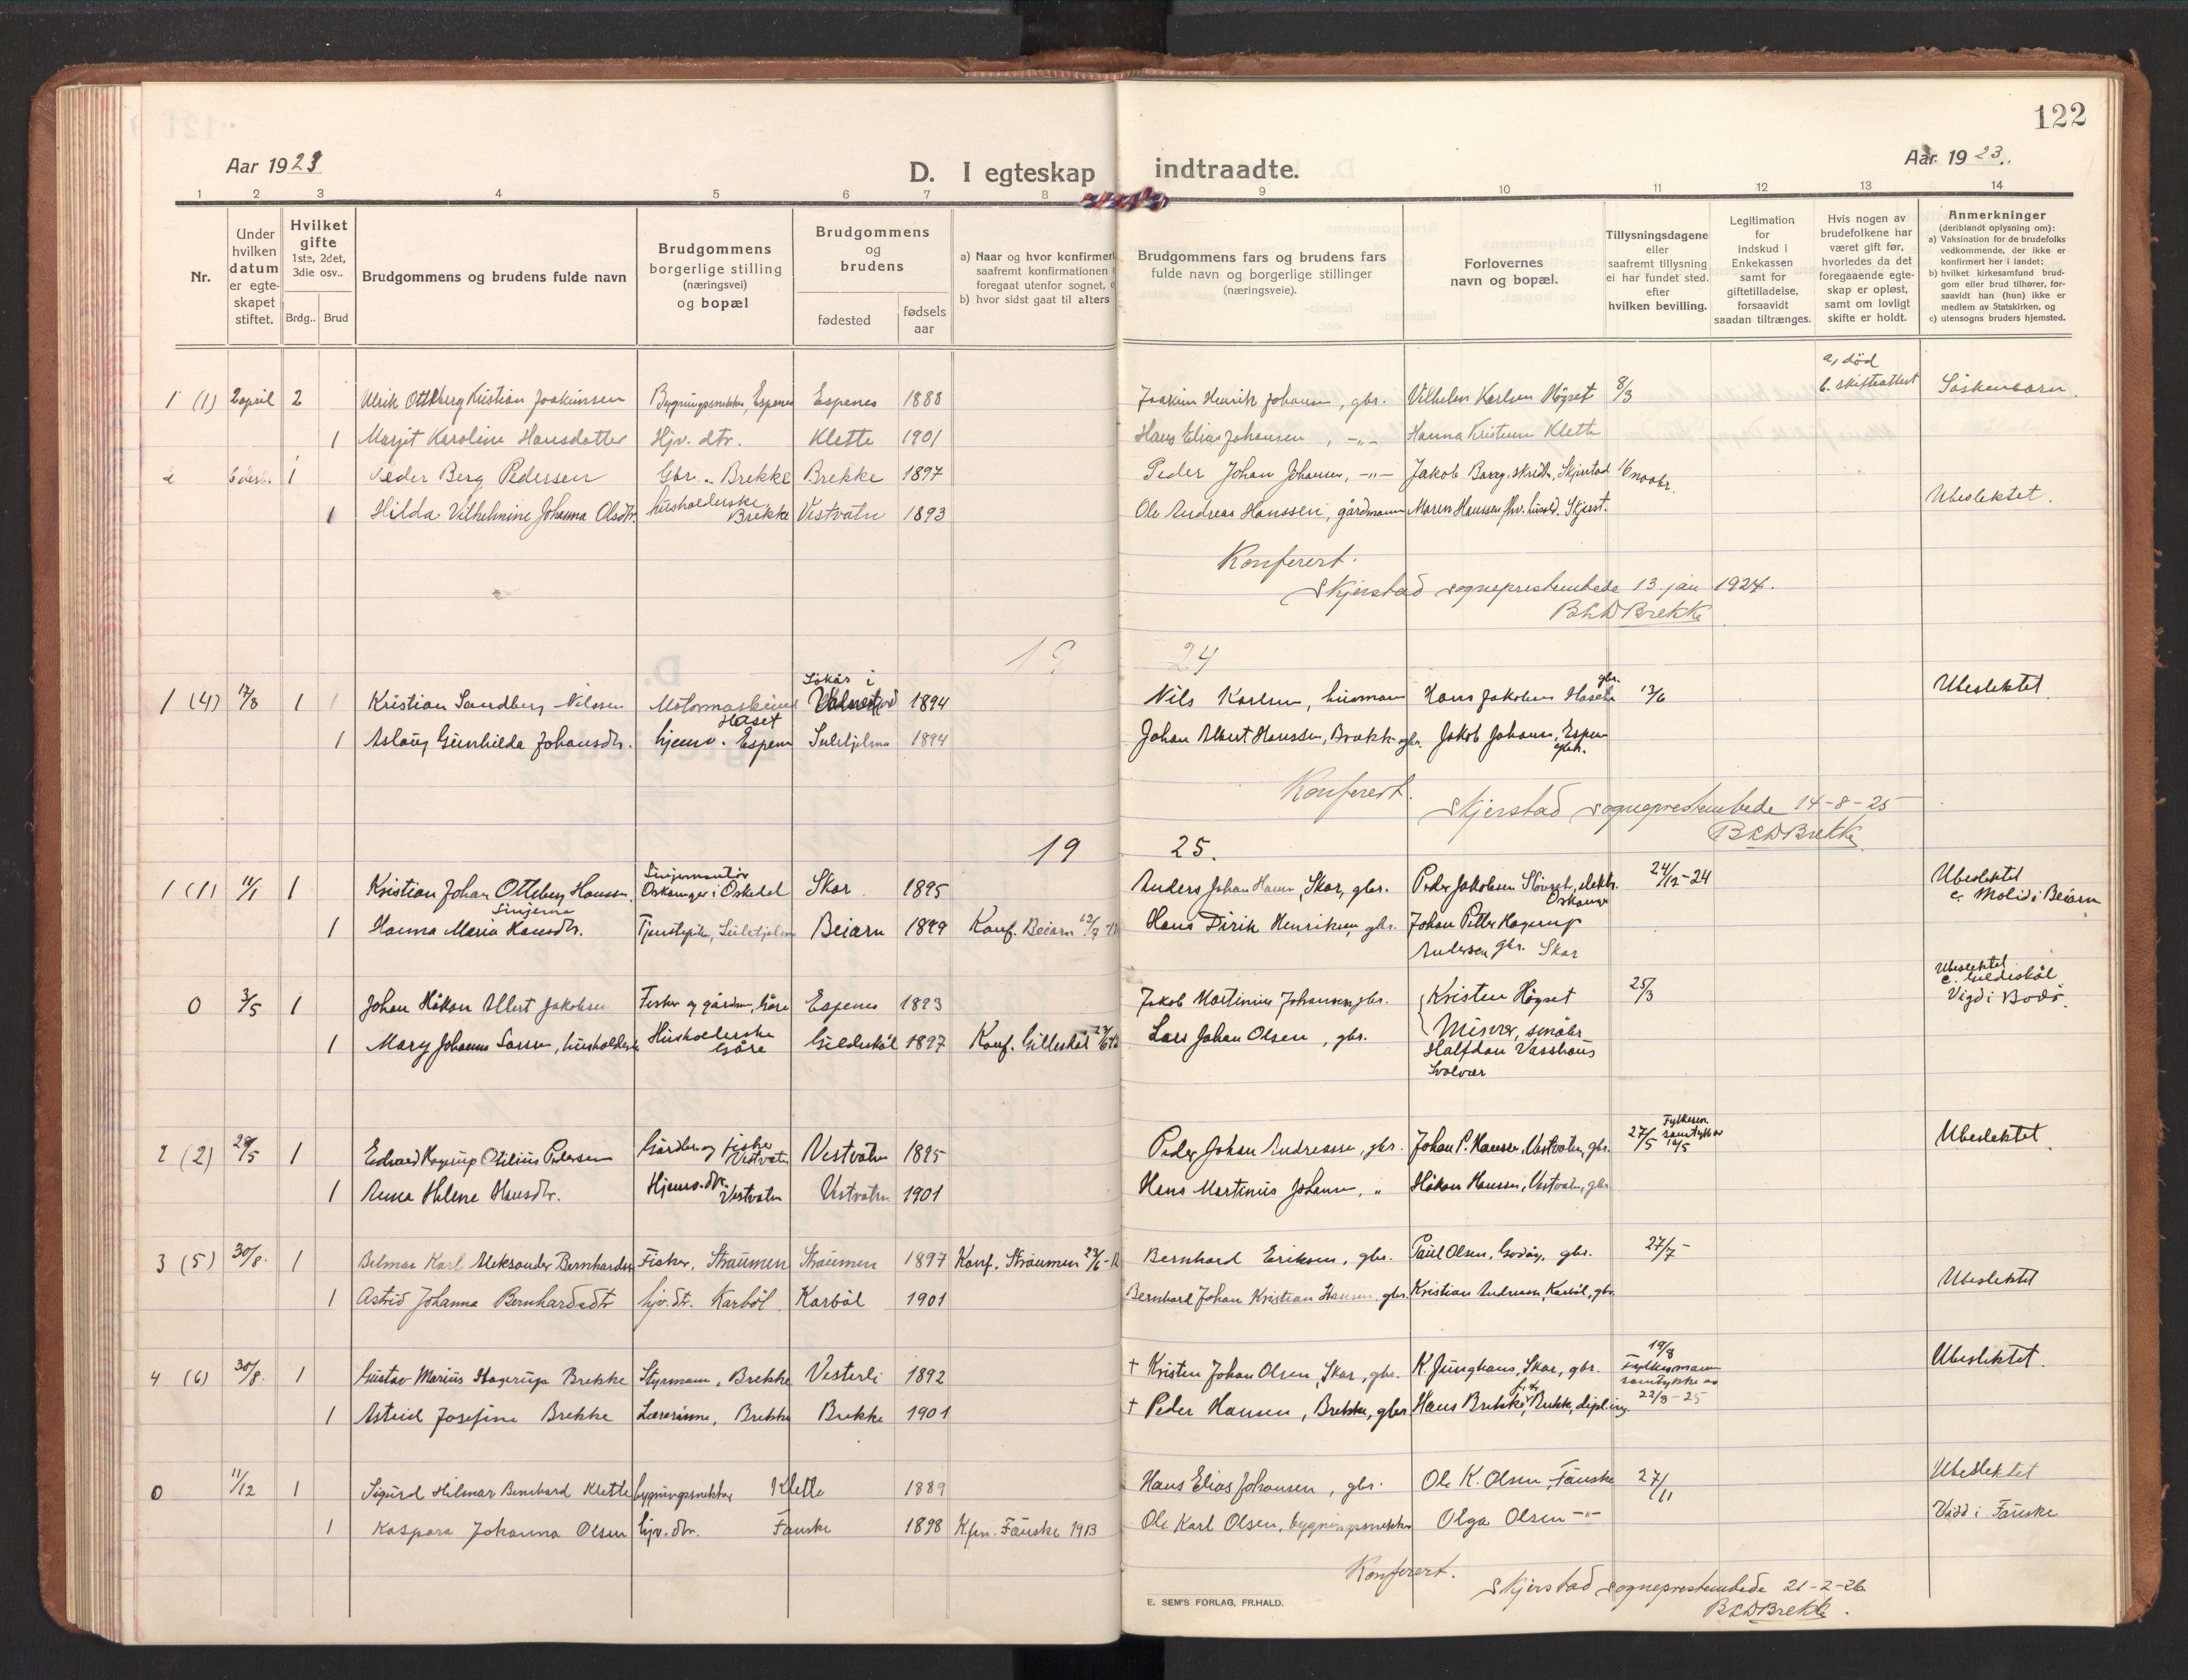 122
Aar 1923
D. I egteskap indtraadte.
Aar 1923.
1 2 3 4 5 6 7 8 9 10 11 12 13 14
Nr.
Under hvilken datum er egteskapet stiftet.
Hvilket gifte 1ste, 2det, 3die osv..
Brdg.. Brud
Brudgommens og brudens fulde navn
Brudgommens borgerlige stilling (næringsvei) og bopæl
Brudgommens og brudens
fødested
fødsels aar
a) Naar og hvor konfirmer
saafremt konfirmationen
foregaat utenfor sognet,
b) hvor sidst gaat til alters
Brudgommens fars og brudens fars fulde navn og borgerlige stillinger (næringsveie).
Forlovernes navn og bopæl.
Tillysningsdagene eller saafremt tillysning ei har fundet sted, efter hvilken bevilling.
Legitimation for indskud i Enkekassen samt for giftetilladelse, forsaavidt saadan tiltrænges.
Hvis nogen av brudefolkene har været gift før, hvorledes da det foregaaende egteskap er opløst, samt om lovligt skifte er holdt.
Anmerkninger (deriblandt oplysning om):
a) Vaksination for de brudefolks vedkommende, der ikke er konfirmert her i landet;
b) hvilket kirkesamfund brudgom eller brud tilhører, forsaavidt han (hun) ikke er medlem av Statskirken, og
c) utensogns bruders hjemsted.
a, død
1 (1) 2 april 2 Ulrik Ottberg Kristian Joakimsen Bygningssnekker, Espenes Espenes 1888 Joakim Henrik Johansen, gbr. Vilhelm Karlsen Høgset 8/3 b. skifteattest Søskenbarn.
1 Marjit Karoline Hansdatter Hjv. dtr. Klette 1901 Hans Elias Johansen, -"- Hanna Kristensen Klette
2 1 Peder Berg Pedersen Gbr. Brekke Brekke 1897 Peder Johan Johansen, -"- Jakob Skjerstad 16 novbr.
1 Hilda Vilhelmine Johanna Olsdtr. husholderske Brekke Vestvatn 1893 Ole Andreas Hanssen, gårdmann Maren Hanssen Skjerst. Ubeslektet.
Konferert.
Skjerstad sogneprestembede 13 jan 1924.
Brekke
19 24
1 (4) 17/8 1 Kristian Sandberg Nilssen Motormaskinist Haset Løkås i Valnesfjord 1894 Nils Karlsen, husmann Hans Jakobsen gbr. 13/6 Ubeslektet.
1 Aslaug Gunhilda Johansdtr. hjemv. Espenes Sulitjelma 1894 Johan Albert Hanssen, Brekke gbr. Jakob Johansen, Espenes
Konferert.
Skjerstad sogneprestembede 14-8-25
Brekke
19 25.
1 (1) 11/1 1 Kristian Johan Ottberg Hanssen. Linjemontør Oskedal Skar 1895 Anders Johan Hansen, Skar, gbr. Peder Jakobsen 24/12-24 Ubeslektet
1 Hanna Marie Hansdtr. Tjenstepike, Sulitjelma Beiarn 1899 Konf. Beiarn Hans Dirik Henriksen gbr. Johan Petter Hagerup Andersen gbr. Skar c. Moldi i Beiarn
0 3/5 1 Johan Håkon Albert Jakobsen Fisker og gårdm, Espenes 1893 Jakob Martinius Johansen gbr. Kristen Høgset 25/3 Ubeslektet c. Gildeskål Vigd i Bodø.
1 Mary Johanne Larsen, husholderske Husholderske Gildeskål 1897 Konf. Gilleskål Lars Johan Olsen, gbr. Misvær, småbr. Halfdan Vasshaus Svolvær
2 (2) 29/5 1 Edvard Hagerup Otilius Pedersen Gårdbr og fisker Vestvatn Vestvatn 1895 Peder Johan Andreassen, gbr. Johan P. Hanssen, Vestvatn, gbr. 27/5 Fylkesm. samtykke 16/5 Ubeslektet.
1 Anna Helene Hansdtr. Hjemv. dtr. Vestvatn Vestvatn 1901 Hans Martinus Johansen, " Håkon Hanssen, Vestvatn, gbr.
3 (5) 30/8. 1 Karl Aleksander Bernhardsen Fisker, Straumen Straumen 1897 Konf. Straumen Bernhard Eriksen, gbr. Paul Olsen, Godøy, gbr. 27/7
1 Astrid Johanna Bernhardsdtr hjv. dtr. Karbøl Karbøl 1901 Bernhard Johan Kristian Hansen, gbr. Kristian Andreasen, Karbøl, gbr. Ubeslektet
4 (6) 30/8. 1 Gustav Marius Hagerup Brekke Styrmann, Brekke Vesterli 1892 † Kristen Johan Olsen, Skar, gbr. K. Junghans, Skar, gbr. 19/8 Fylkesmann samtykke av 22/8-25 Ubeslektet.
1 Astrid Josefine Brekke Lærerinne, Brekke Brekke 1901 † Peder Hansen, Brekke, gbr Hans Brekke, Brekke, dipl.ing.
0 11/12 1 Sigurd Hilmar Bernhard Klette bygningssnekker Klette 1889 Hans Elias Johansen, gbr. Ole K. Olsen, Fauske 27/11 Ubeslektet
1 Kaspara Johanna Olsen hjv. dtr. Fauske 1898 Kfm. Fauske 1913 Ole Karl Olsen, bygningssnekker Olga Olsen -"- Vidd i Fauske
Konferert.
Skjerstad sogneprestembede 21-2-26
Brekke.
E. SEM'S FORLAG, FR.HALD.